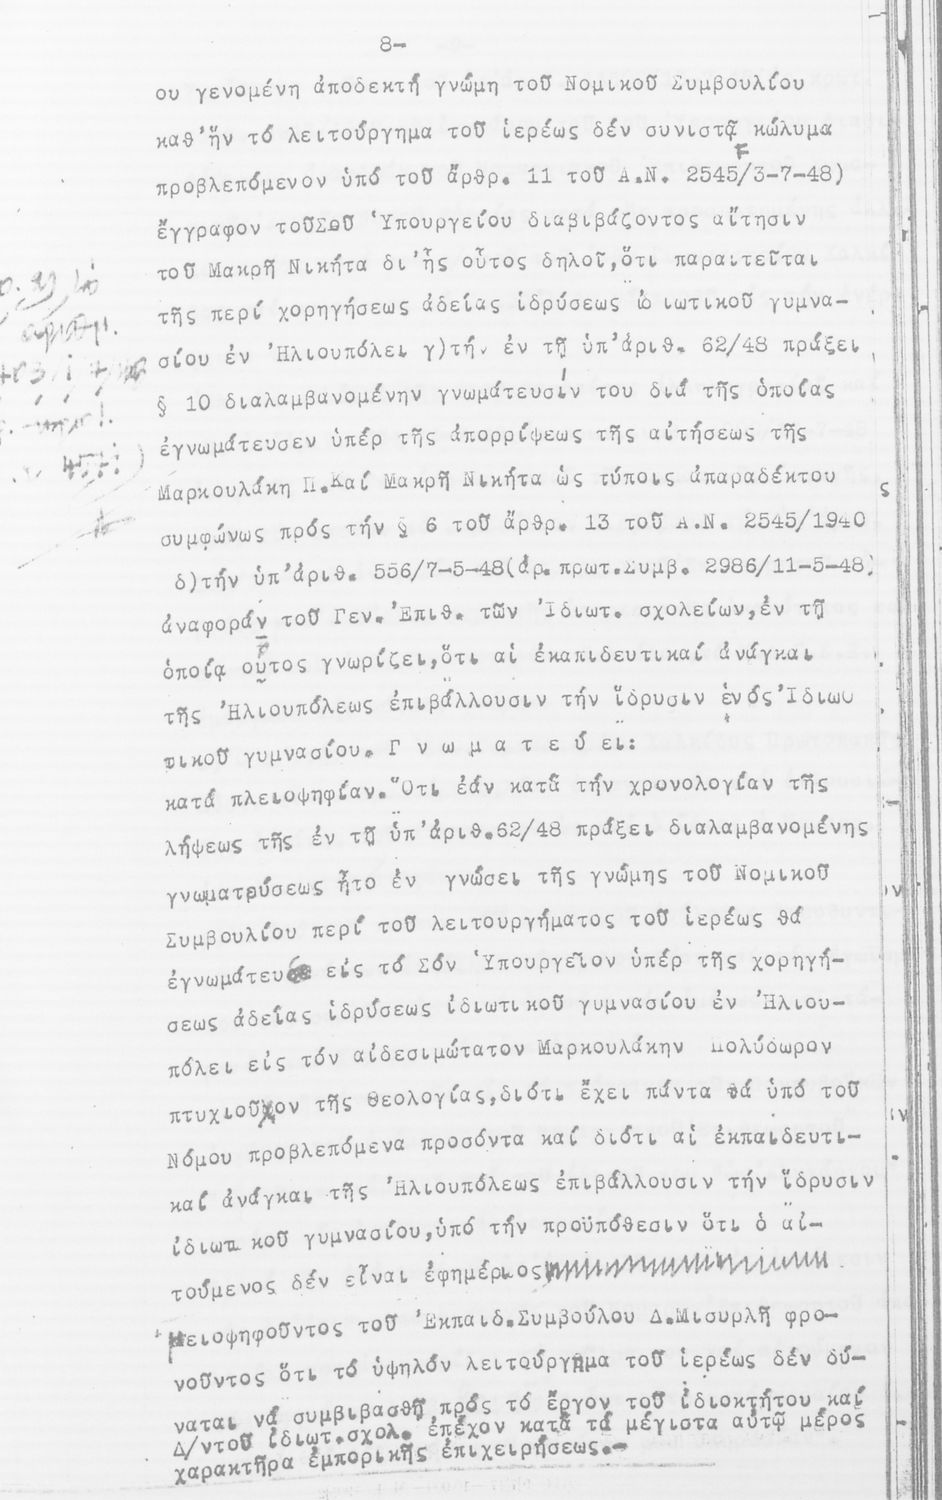 8-
ου γενομένη ἀποδεκτή γνώμη τοῦ Νομικοῦ Συμβουλίου
καθ'ἥν τό λειτούργημα τοῦ ἱερέως δέν συνιστᾷ κώλυμα
προβλεπόμενον ὑπό τοῦ ἄρθρ. 11 τοῦ Α.Ν. 2545/3-7-48)
ἔγγραφον τοῦΣοῦ Ὑπουργείου διαβιβάζοντος αἴτησιν
τοῦ Μακρῆ Νικήτα δι'ἧς οὗτος δηλοῖ,ὅτι παραιτεῖται
τῆς περί χορηγήσεως ἀδείας ἱδρύσεως ἰδιωτικοῦ γυμνα-
σίου ἐν Ἡλιουπόλει γ)τήν ἐν τῇ ὑπ'ἀριθ. 62/48 πράξει
§ 10 διαλαμβανομένην γνωμάτευσίν του διά τῆς ὁποίας
ἐγνωμάτευσεν ὑπέρ τῆς ἀπορρίψεως τῆς αἰτήσεως τῆς
Μαρκουλάκη Π.Καί Μακρῆ Νικήτα ὡς τύποις ἀπαραδέκτου
συμφώνως πρός τήν § 6 τοῦ ἄρθρ. 13 τοῦ Α.Ν. 2545/1940
δ)τήν ὑπ'ἀριθ. 556/7-5-48(ἀρ.πρωτ.Συμβ. 2986/11-5-48)
ἀναφοράν τοῦ Γεν.Ἐπιθ. τῶν Ἰδιωτ. σχολείων,ἐν τῇ
ὁποίᾳ οὗτος γνωρίζει,ὅτι αἱ ἐκαπιδευτικαί ἀνάγκαι
τῆς Ἡλιουπόλεως ἐπιβάλλουσιν τήν ἵδρυσιν ἑνός Ἰδιωυ
τικοῦ γυμνασίου. Γ ν ω μ α τ ε ύ ει:
κατά πλειοψηφίαν.Ὅτι ἐάν κατά τήν χρονολογίαν τῆς
λήψεως τῆς ἐν τῇ ὑπ'ἀριθ.62/48 πράξει διαλαμβανομένης
γνωματεύσεως ἦτο ἐν γνώσει τῆς γνώμης τοῦ Νομικοῦ
Συμβουλίου περί τοῦ λειτουργήματος τοῦ ἱερέως θά
ἐγνωμάτευσε εἰς τό Σόν Ὑπουργεῖον ὑπέρ τῆς χορηγή-
σεως ἀδείας ἱδρύσεως ἰδιωτικοῦ γυμνασίου ἐν Ἡλιου-
πόλει εἰς τόν αἰδεσιμώτατον Μαρκουλάκην Πολύδωρον
πτυχιοῦχον τῆς Θεολογίας,διότι ἔχει πάντα θά ὑπό τοῦ
Νόμου προβλεπόμενα προσόντα καί διότι αἱ ἐκπαιδευτι-
καί ἀνάγκαι τῆς Ἡλιουπόλεως ἐπιβάλλουσιν τήν ἵδρυσιν
ἰδιωτικοῦ γυμνασίου,ὑπό τήν προϋπόθεσιν ὅτι ὁ αἰ-
τούμενος δέν εἶναι ἐφημέριος
Μειοψηφοῦντος τοῦ Ἐκπαιδ.Συμβούλου Δ.Μισυρλῆ φρο-
νοῦντος ὅτι τό ὑψηλόν λειτούργημα τοῦ ἱερέως δέν δύ-
ναται νά συμβιβασθῇ πρός τό ἔργον τοῦ ἰδιοκτήτου καί
Δ/ντοῦ ἰδιωτ.σχολ. ἐπέχον κατά τά μέγιστα αὐτῷ μέρος
χαρακτῆρα ἐμπορικῆς ἐπιχειρήσεως.-